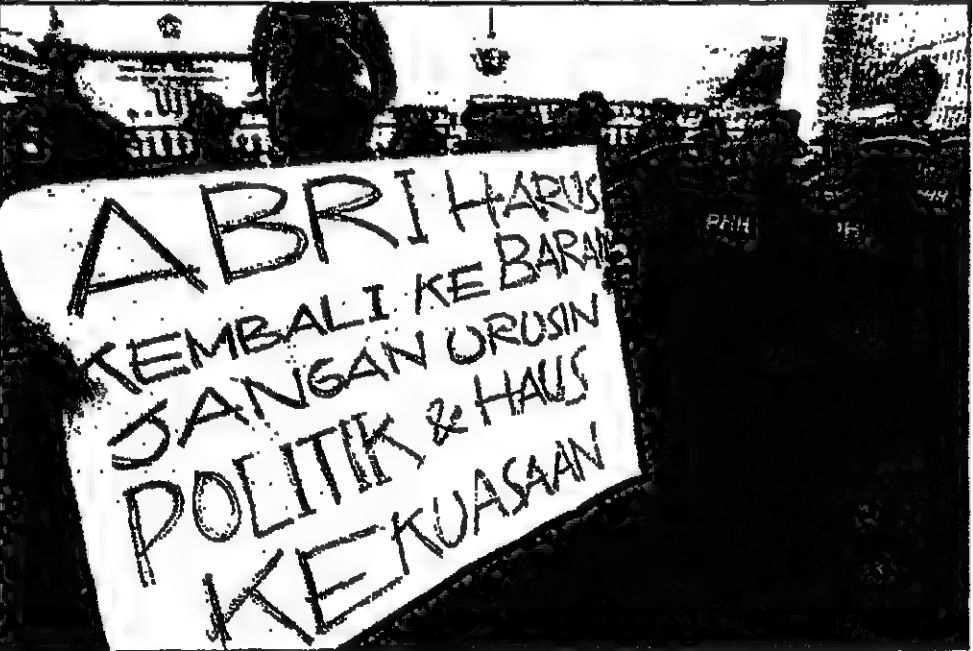 ABRI HARUS
KEMBALI KE BARAK
JANGAN URUSIN
POLITIK & HAUS
KEKUASAAN
PHH